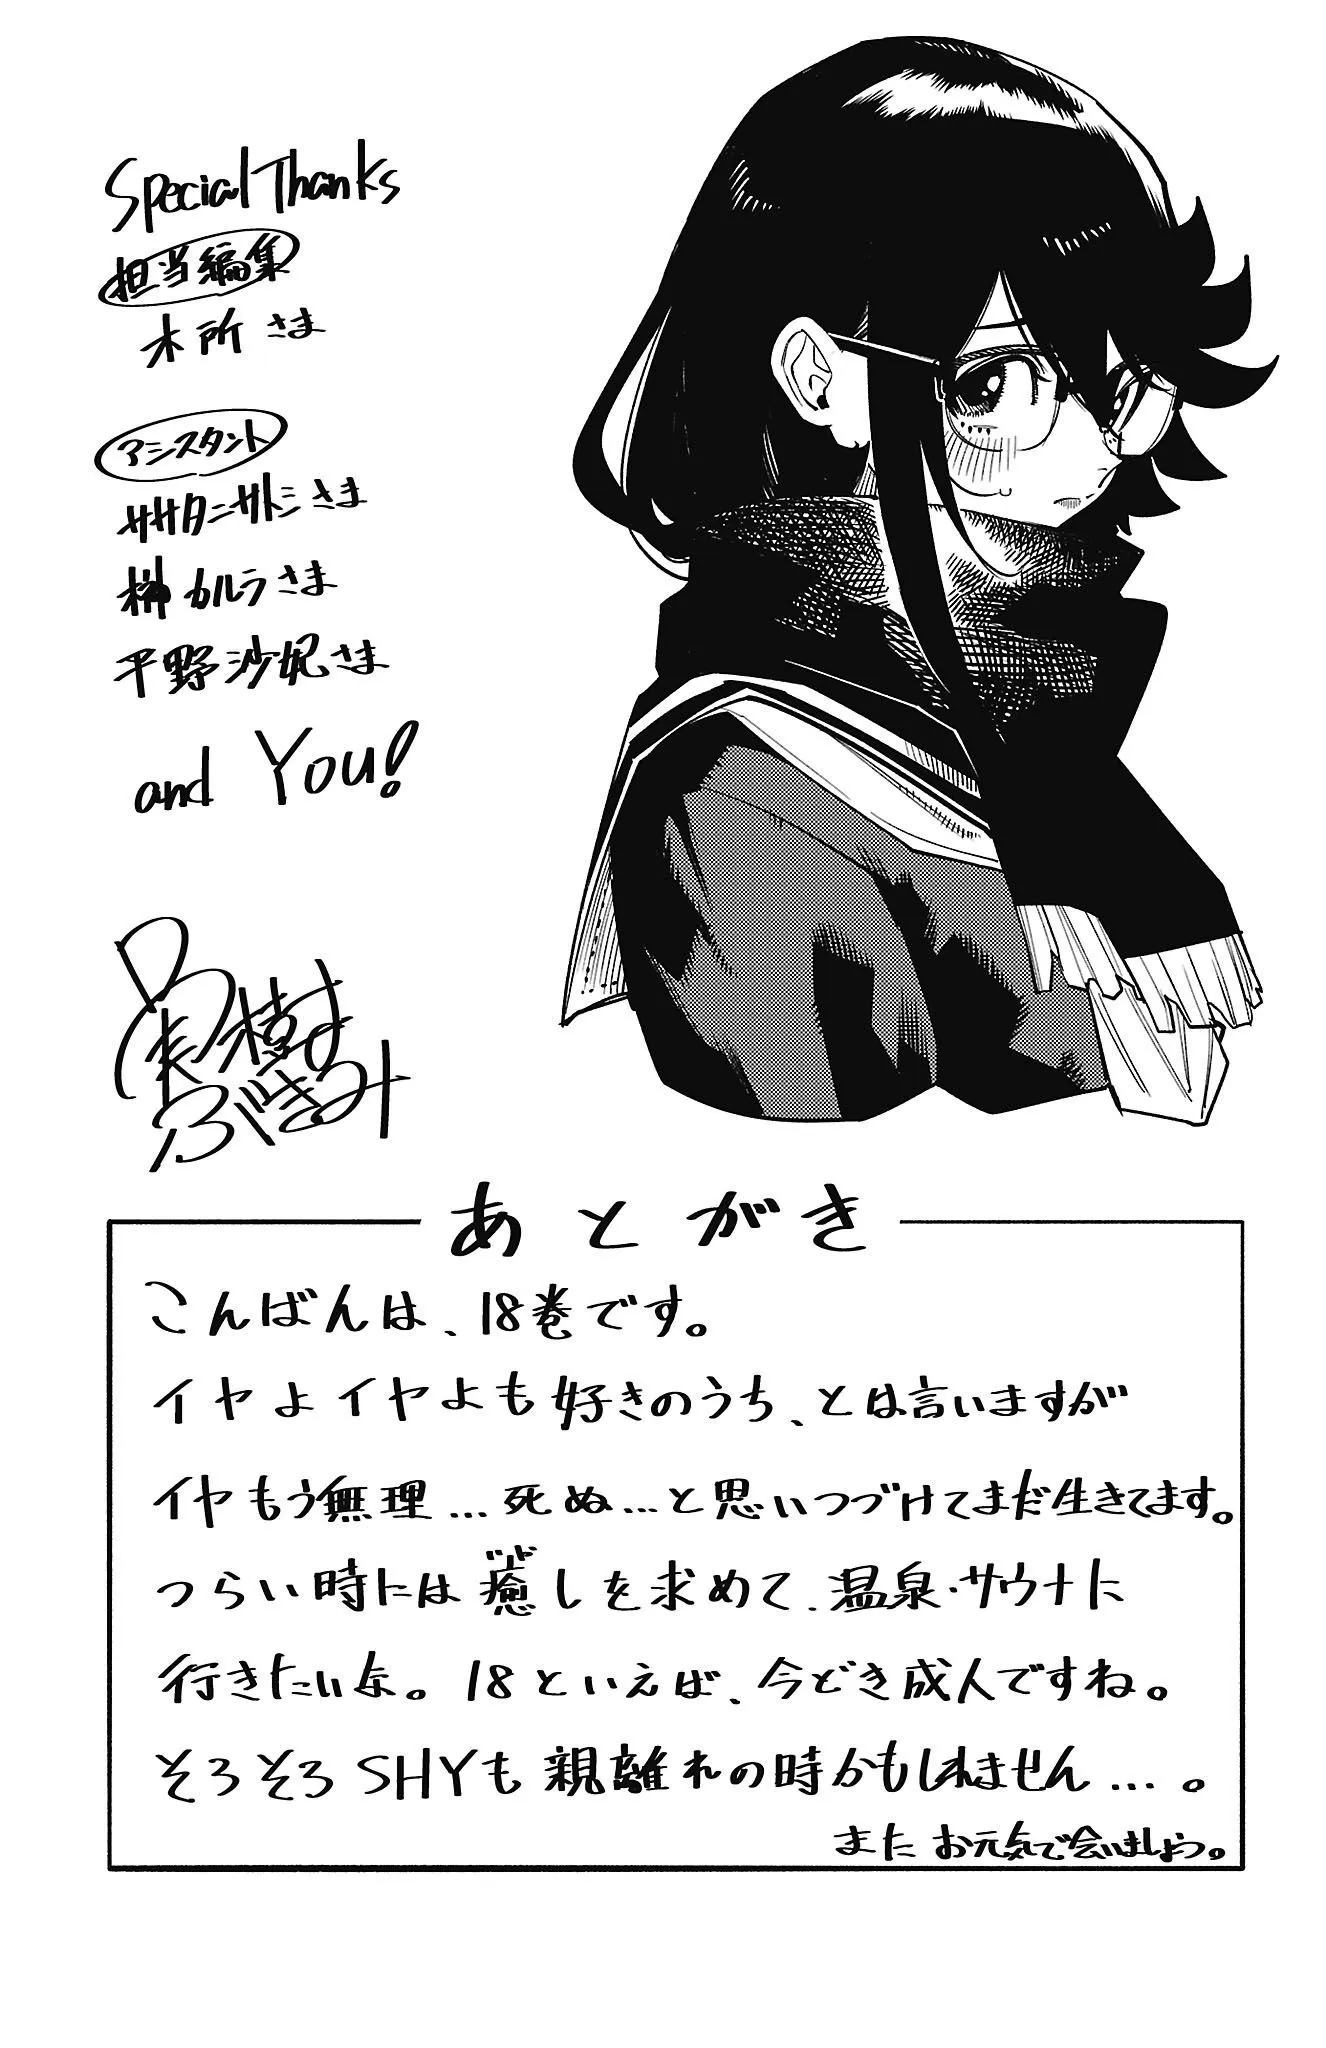 Special Thanks
担当編集
木所 さま
アシスタント
ササタニサトシさま
榊 カルラさま
平野沙妃さま
and You!
実樹
ぶきみ
あとがき
こんばんは、18巻です。
イヤよイヤよも好きのうち、とは言いますが
イヤもう無理…死ぬ…と思いつづけてまだ生きてます。
つらい時には癒しを求めて、温泉・サウナに
行きたいな。18といえば、今どき成人ですね。
そろそろSHYも親離れの時かもしれません…。
また お元気で会いましょう。